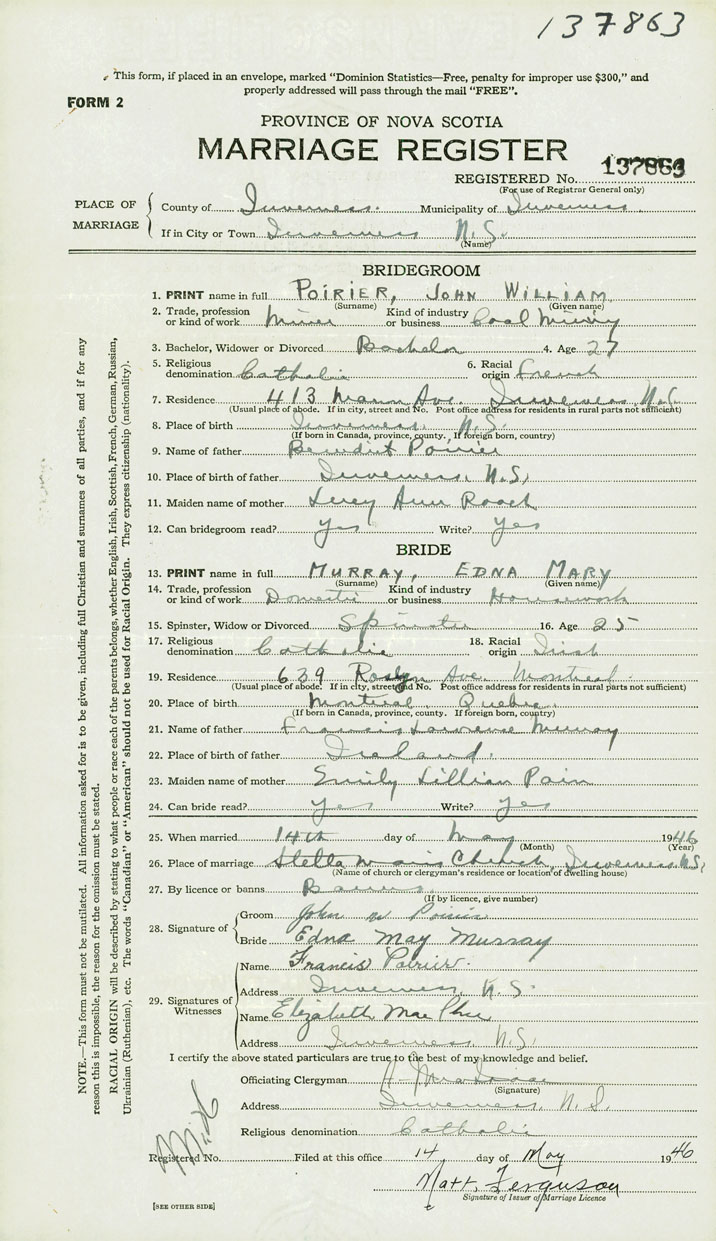 137863
This form, if placed in an envelope, marked "Dominion Statistics—Free, penalty for improper use $300," and
properly addressed will pass through the mail "FREE".
FORM 2
PROVINCE OF NOVA SCOTIA
MARRIAGE REGISTER
REGISTERED No. 137863
(For use of Registrar General only)
PLACE OF MARRIAGE
County of Inverness. Municipality of Inverness
If in City or Town Inverness N.S.
(Name)
BRIDEGROOM
1. PRINT name in full POIRIER, JOHN WILLIAM
(Surname) (Given name)
2. Trade, profession or kind of work Miner Kind of industry or business Coal Mining
3. Bachelor, Widower or Divorced Bachelor 4. Age 27
5. Religious denomination Catholic 6. Racial origin French
7. Residence 413 Ave. Inverness N.S.
(Usual place of abode. If in city, street and No. Post office address for residents in rural parts not sufficient)
8. Place of birth Inverness. N.S.
(If born in Canada, province, county. If foreign born, country)
9. Name of father Benedict Poirier
10. Place of birth of father Inverness, N.S.
11. Maiden name of mother Lucy Ann Roach
12. Can bridegroom read? Yes Write? Yes
BRIDE
13. PRINT name in full MURRAY, EDNA MARY
(Surname) (Given name)
14. Trade, profession or kind of work Domestic Kind of industry or business Housework
15. Spinster, Widow or Divorced Spinster 16. Age 25
17. Religious denomination Catholic 18. Racial origin Irish
19. Residence 639 Roslyn Ave. Montreal.
(Usual place of abode. If in city, street and No. Post office address for residents in rural parts not sufficient)
20. Place of birth Montreal, Quebec.
(If born in Canada, province, county. If foreign born, country)
21. Name of father Francis Lawrence Murray
22. Place of birth of father Ireland.
23. Maiden name of mother Emily Lillian Pain
24. Can bride read? Yes Write? Yes
25. When married 14th day of May 1946
(Month) (Year)
26. Place of marriage Stella Maris Church, Inverness N.S.
(Name of church or clergyman's residence or location of dwelling house)
27. By licence or banns Banns
(If by licence, give number)
28. Signature of
Groom John W Poirier
Bride Edna May Murray
29. Signatures of Witnesses
Name Francis Poirier.
Address Inverness, N.S.
Name Elizabeth Mac
Address Inverness N.S.
I certify the above stated particulars are true to the best of my knowledge and belief.
Officiating Clergyman
(Signature)
Address Inverness, N.S.
Religious denomination Catholic
Registered No. Filed at this office 14 day of May 1946
Matt. Ferguson
Signature of Issuer of Marriage Licence
[SEE OTHER SIDE]
NOTE.—This form must not be mutilated. All information asked for is to be given, including full Christian and surnames of all parties, and if for any
reason this is impossible, the reason for the omission must be stated.
RACIAL ORIGIN will be described by stating to what people or race each of the parents belongs, whether English, Irish, Scottish, French, German, Russian,
Ukrainian (Ruthenian), etc. The words "Canadian" or "American" should not be used for Racial Origin. They express citizenship (nationality).